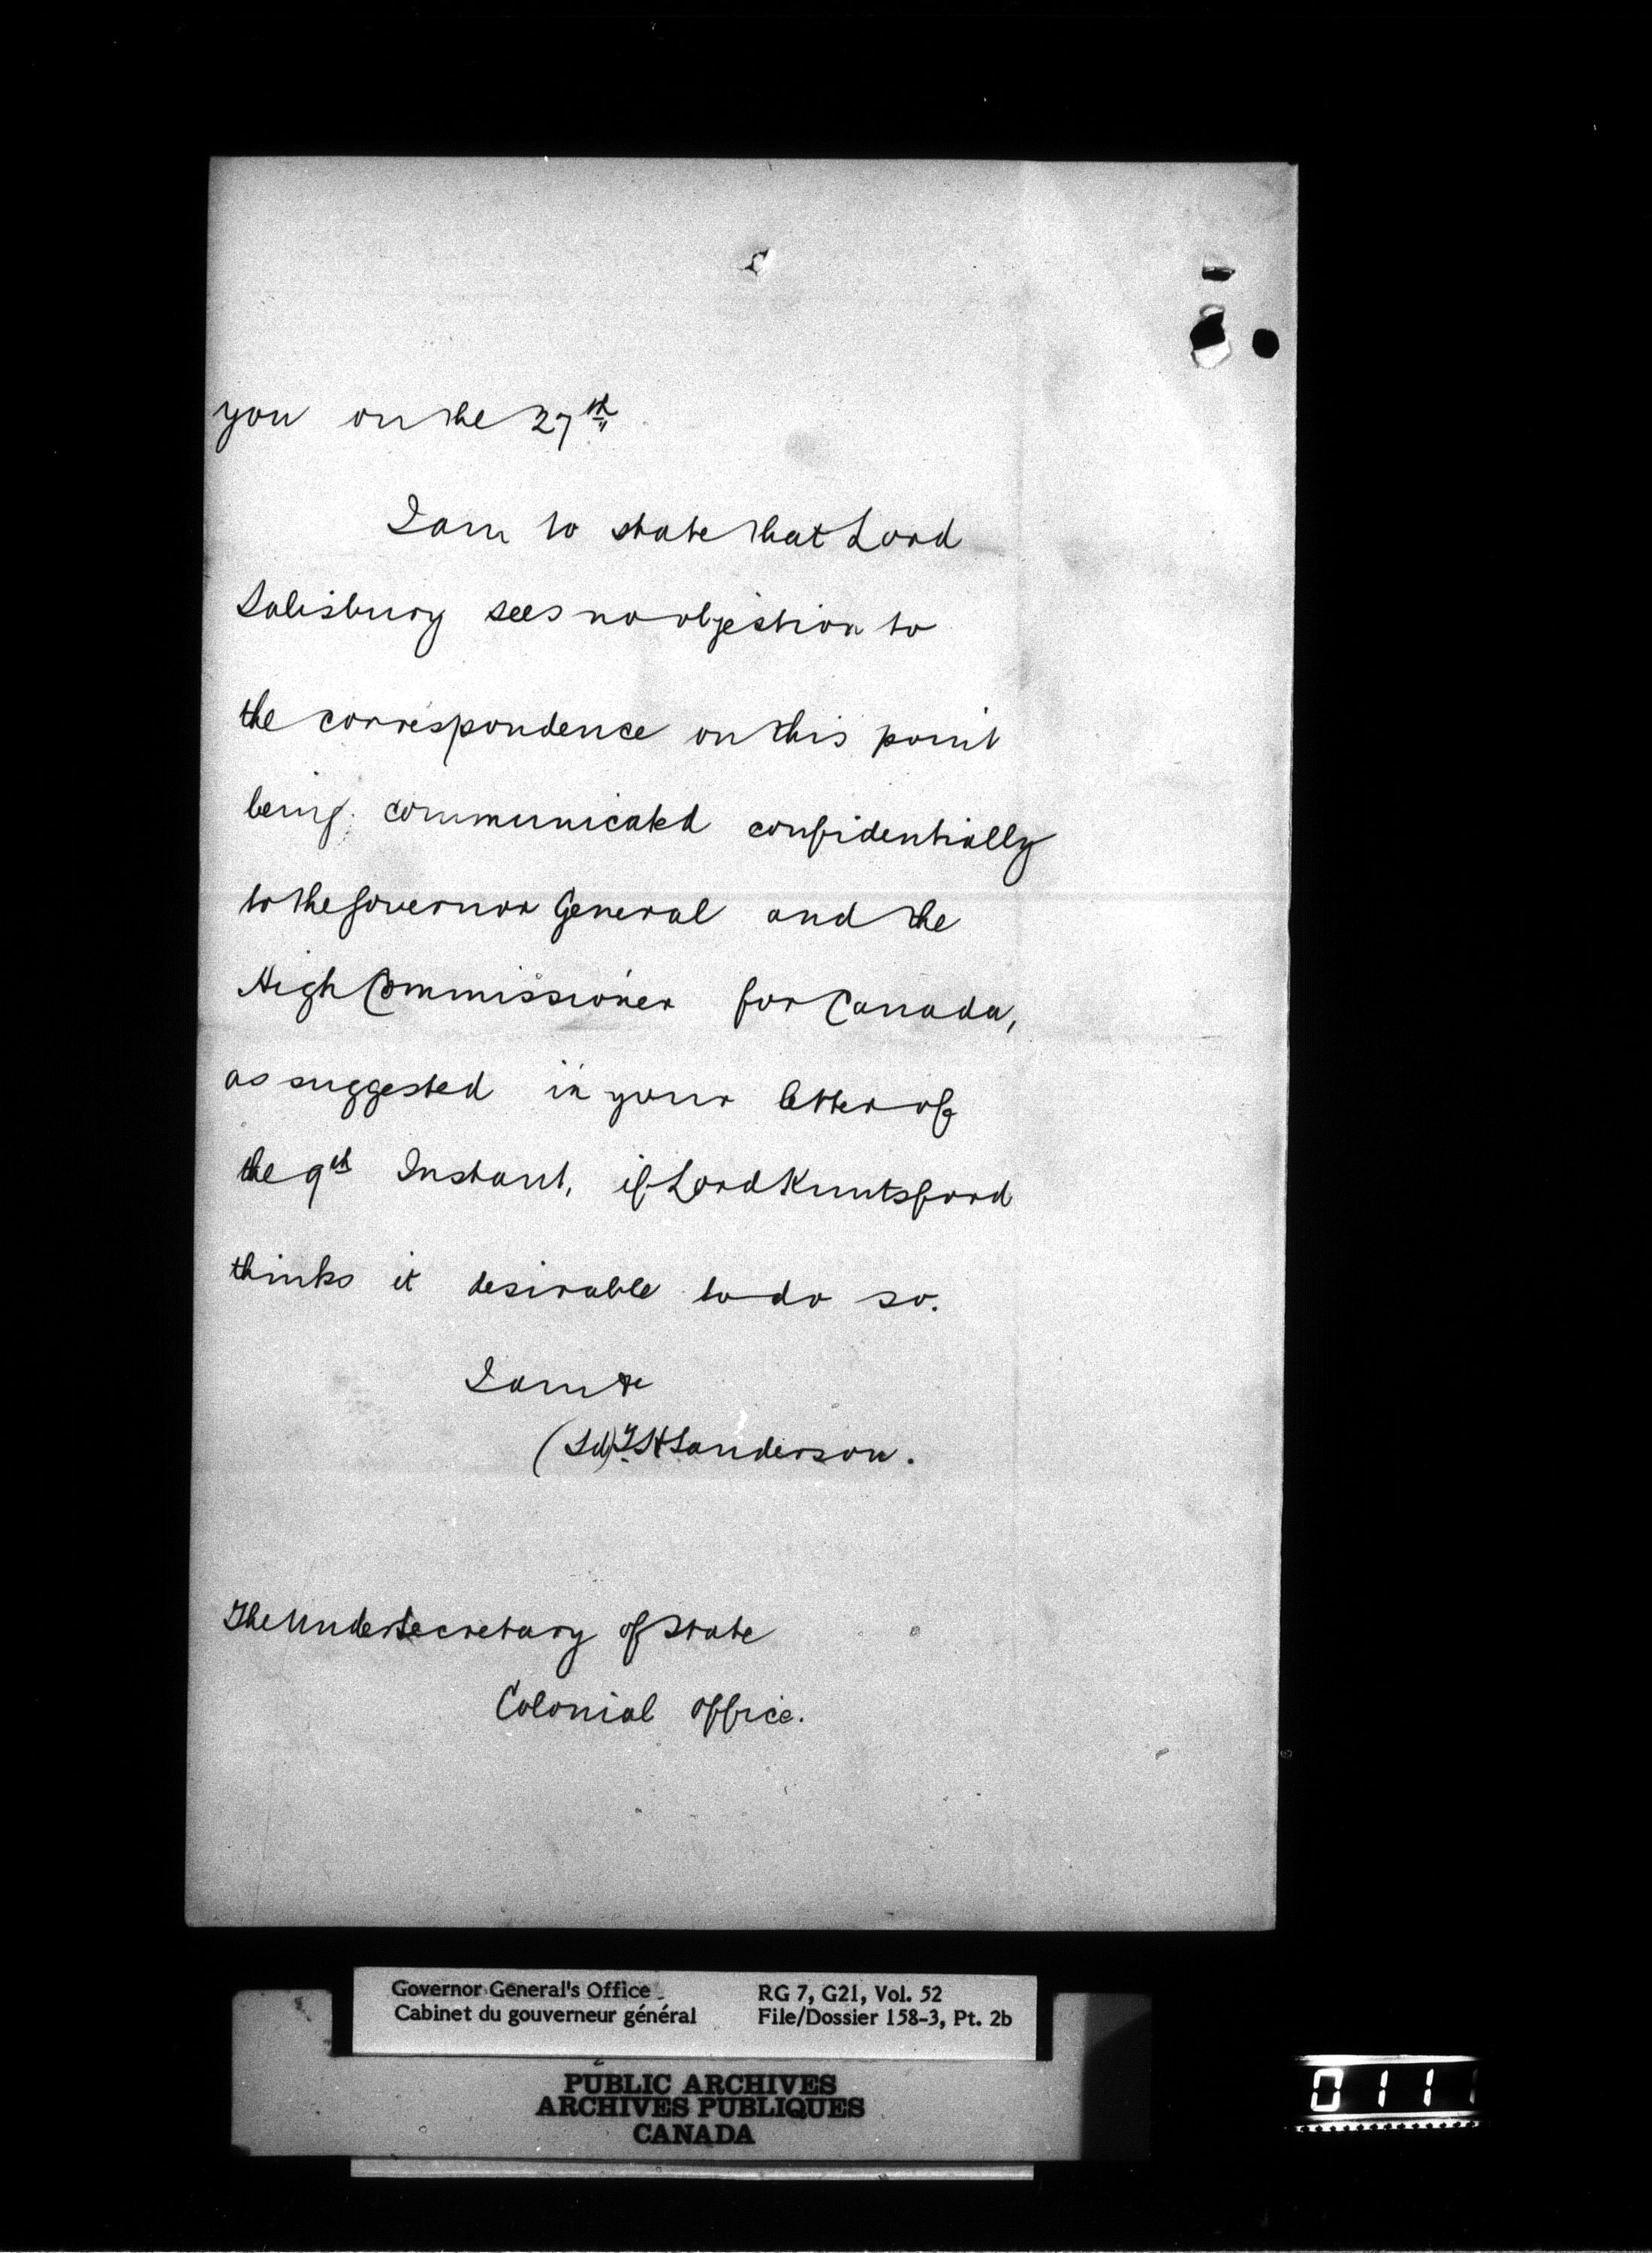 you on the 27th
I am to state that Lord
Salisbury sees no objection to
the correspondence on this point
being communicated confidentially
to the Governor General and the
High Commissioner for Canada,
as suggested in your letter of
the 9th Instant, if Lord Knutsford
thinks it desirable to do so.
I am &c
(Sd). T H Sanderson.
The Under Secretary of State
Colonial Office.
Governor General's Office
Cabinet du gouverneur général
RG 7, G21, Vol. 52
File/Dossier 158-3, Pt. 2b
PUBLIC ARCHIVES
ARCHIVES PUBLIQUES
CANADA
0111